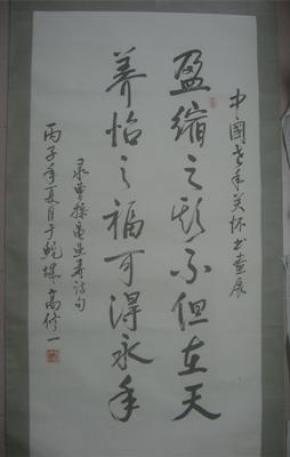 中國老年关怀书画展
盈缩之期不但在天
养怡之福可得永年
录曹操龟虽寿诗句
丙子年夏月于 高修一